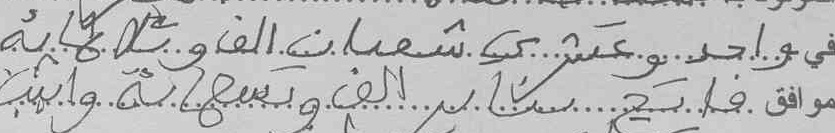 في واحد وعشرين شعبان الف وثلاثمائة
موافق فاتح يناير الف وتسعمائة واثنين